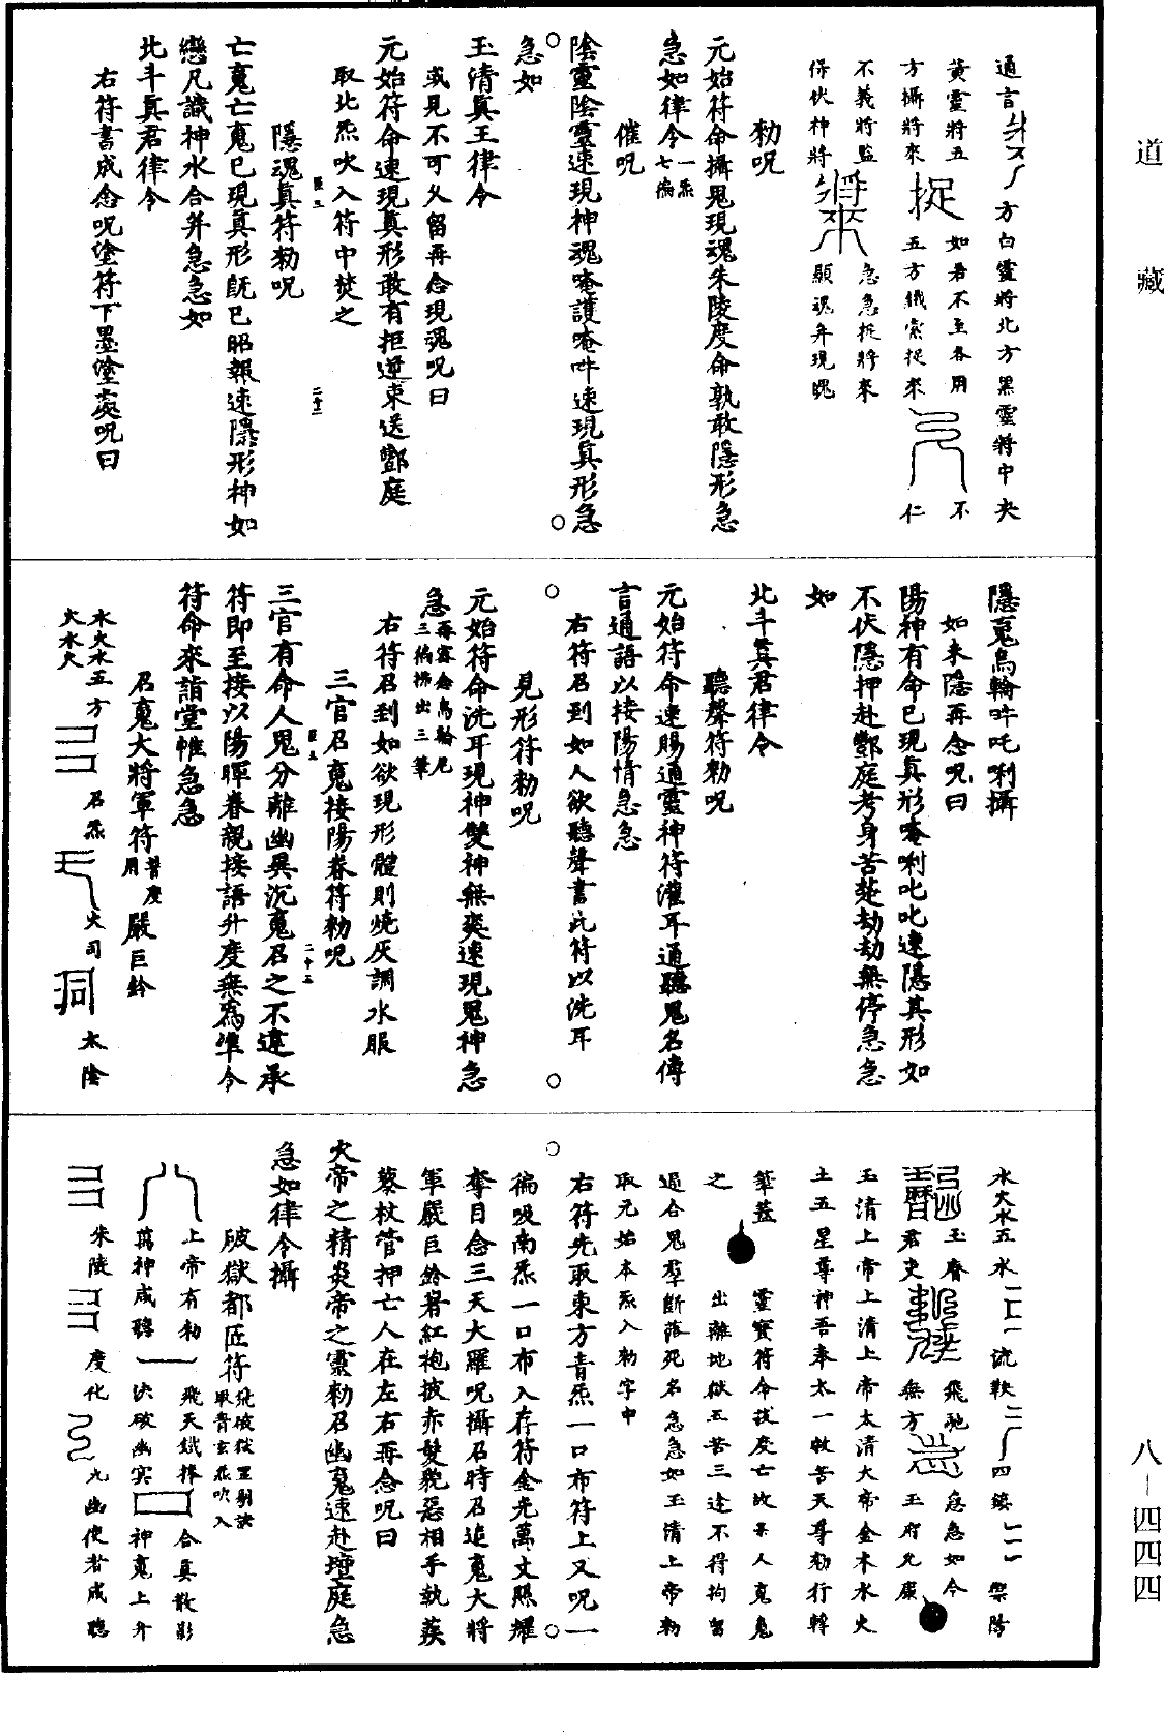 道藏
通言方白靈將北方黑靈將中央
黃靈將五如君不至各用不
方攝將來五方鐵索捉來仁
不義將監急急捉將來
得伏神將顯魂弁現魄
勑呪
元始符命攝鬼現魂朱陵度命孰敢隱形急
急如律令一炁七徧
催呪
陰靈陰靈速現神魂唵護唵吽速現真形急
急如
玉清真王律令
或見不可久留再念現魂呪曰
元始符命速現真形敢有拒逆束送酆庭
取北炁吹入符中焚之
隱魂真符勑呪
亡䰟亡䰟已現真形既已昭報速隱形神如
戀凡識神水合并急急如
北斗真君律令
右符書成念呪塗符下墨塗䆫呪曰
隱䰟烏輪吽吒唎攝
如未隱再念呪曰
陽神有命已現真形唵唎叱叱速隱其形如
不伏隱押赴酆庭考身苦楚劫劫無停急急
如
北斗真君律令
聽聲符勑呪
元始符命速賜通靈神符灌耳通聽鬼名傳
言通語以接陽情急急
右符召到如人欲聽聲書此符以洗耳
見形符勑呪
元始符命洗耳現神雙神無爽速現鬼神急
急再密念烏輪尼三徧拂出三筆
右符召到如欲現形體則燒灰調水服
三官召䰟接陽眷符勑呪
三官有命人鬼分離幽異沉䰟召之不違承
符即至接以陽暉眷親接語升度無為準令
符命來詣堂帷急急
召䰟大將軍符普度用嚴巨鈴
水火水五方召炁火司太陰
火水火
水大水五水流軼二四鎮禦陰
玉眷飛馳急急如令
君吏無方玉府允廉
玉清上帝上清上帝太清大帝金木水火
土五星尊神吾奉太一救苦天尊勑行轉
華蓋靈寶符命拔度亡故某人䰟鬼
之出離地獄五苦三途不得拘留
過合鬼羣斷落死名急急如玉清上帝勑
取元始本炁入勑字中
右符先取東方青炁一口布符上又呪一
徧吸南炁一口布入存符金光萬丈照耀
奪目念三天大羅呪攝召時召追䰟大將
軍嚴巨鈴著紅袍披赤髮貌惡相手執蒺
藜杖管押亡人在左右再念呪曰
火帝之精炎帝之靈勑召幽䰟速赴壇庭急
急如律令攝
破獄都匠符
上帝有勑飛天鐵捧合真散影
萬神咸聽決破幽冥神䰟上升
朱陵度化九幽使者咸聽
八—四四四